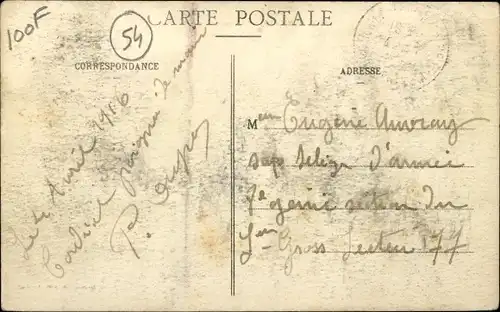 100F
54
CARTE POSTALE
CORRESPONDANCE
ADRESSE
Le 4 Avril 1916
Cordiale poignée de main
P.
Mr Eugène Auvray
sap d'armée
7e génie section du
Gross Secteur 177